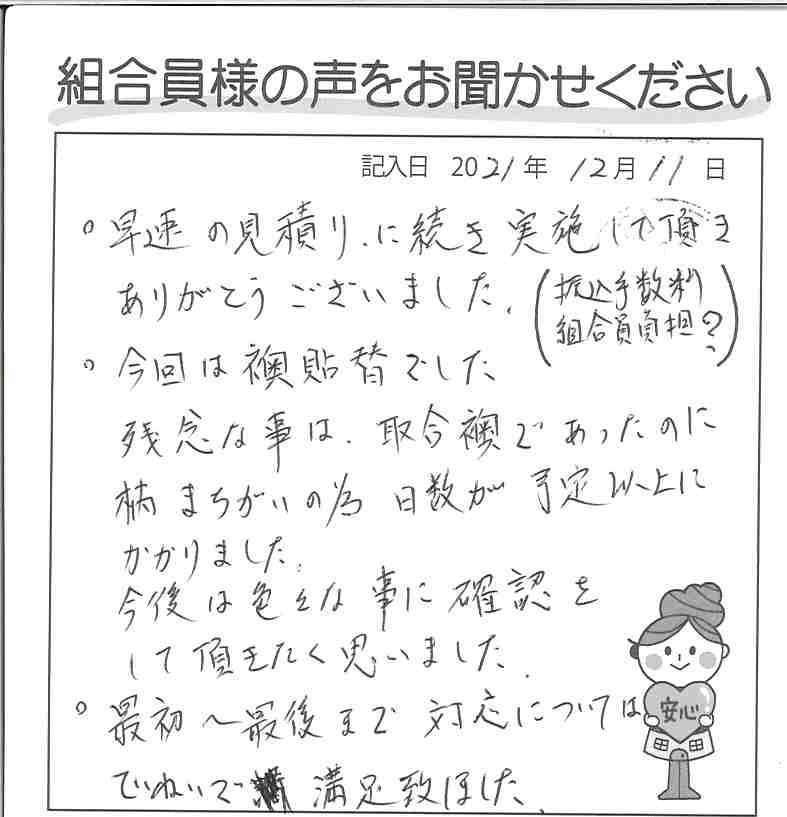 組合員様の声をお聞かせください
記入日 2021年 12月 11日
○ 早速の見積り、に続き実施して頂き
ありがとうございました。
(振込手数料
組合員負担?)
○ 今回は襖貼替でした
残念な事は、取合襖であったのに
柄まちがいの為 日数が予定以上に
かかりました。
今後は色々な事に確認を
して頂きたく思いました。
○ 最初~最後まで 対応については
ていねいで 満足致しました。
安心